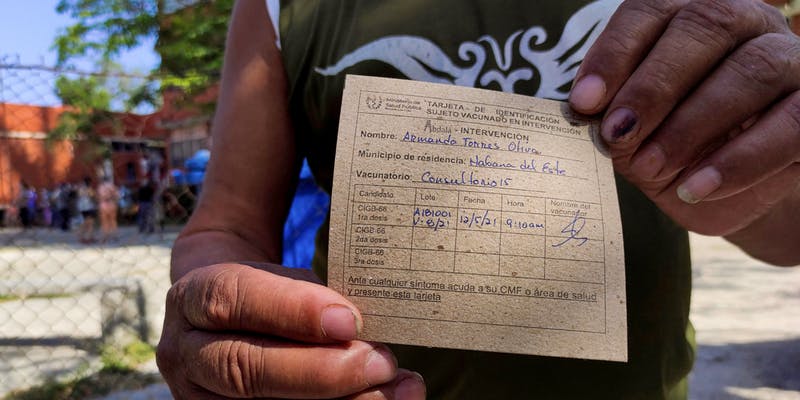 Ministerio de
Salud Pública
TARJETA - DE IDENTIFICACIÓN
SUJETO VACUNADO EN INTERVENCIÓN
Abdala - INTERVENCIÓN
Nombre: Armando Torres Oliva
Municipio de residencia: Habana del Este
Vacunatorio: Consultorio 15
Candidato Lote Fecha Hora Nombre del vacunador
CIGB-66
1ra dosis
12/5/21 9:10am
CIGB-66
2da dosis
CIGB-66
3ra dosis
Ante cualquier síntoma acuda a su CMF o área de salud
y presente esta tarjeta